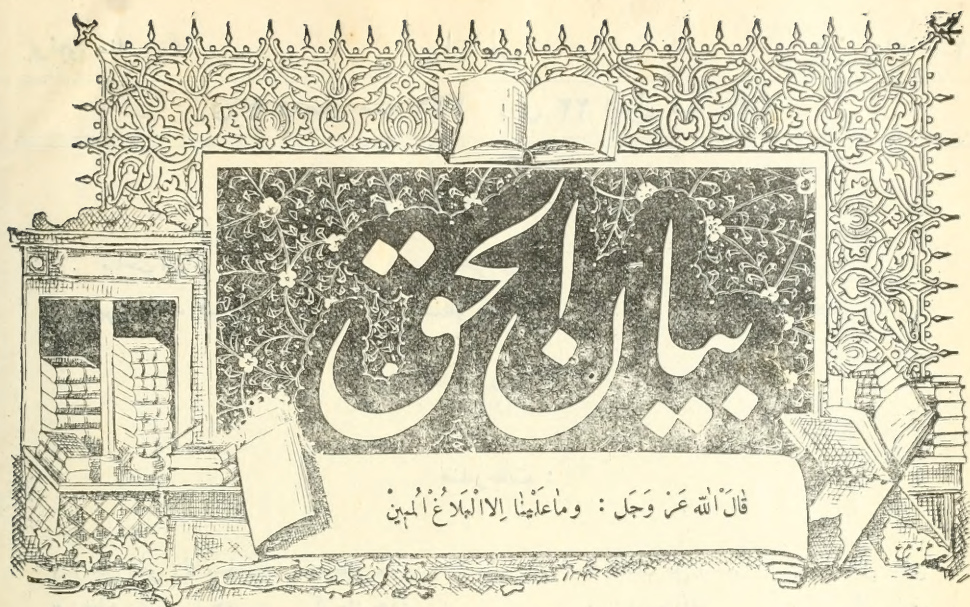 بيان الحق
قَالَ اللّٰه عَزَّ وَجَل : وما عَلَيْنٰا اِلاالْبَلاٰغُ الْمُبينْ